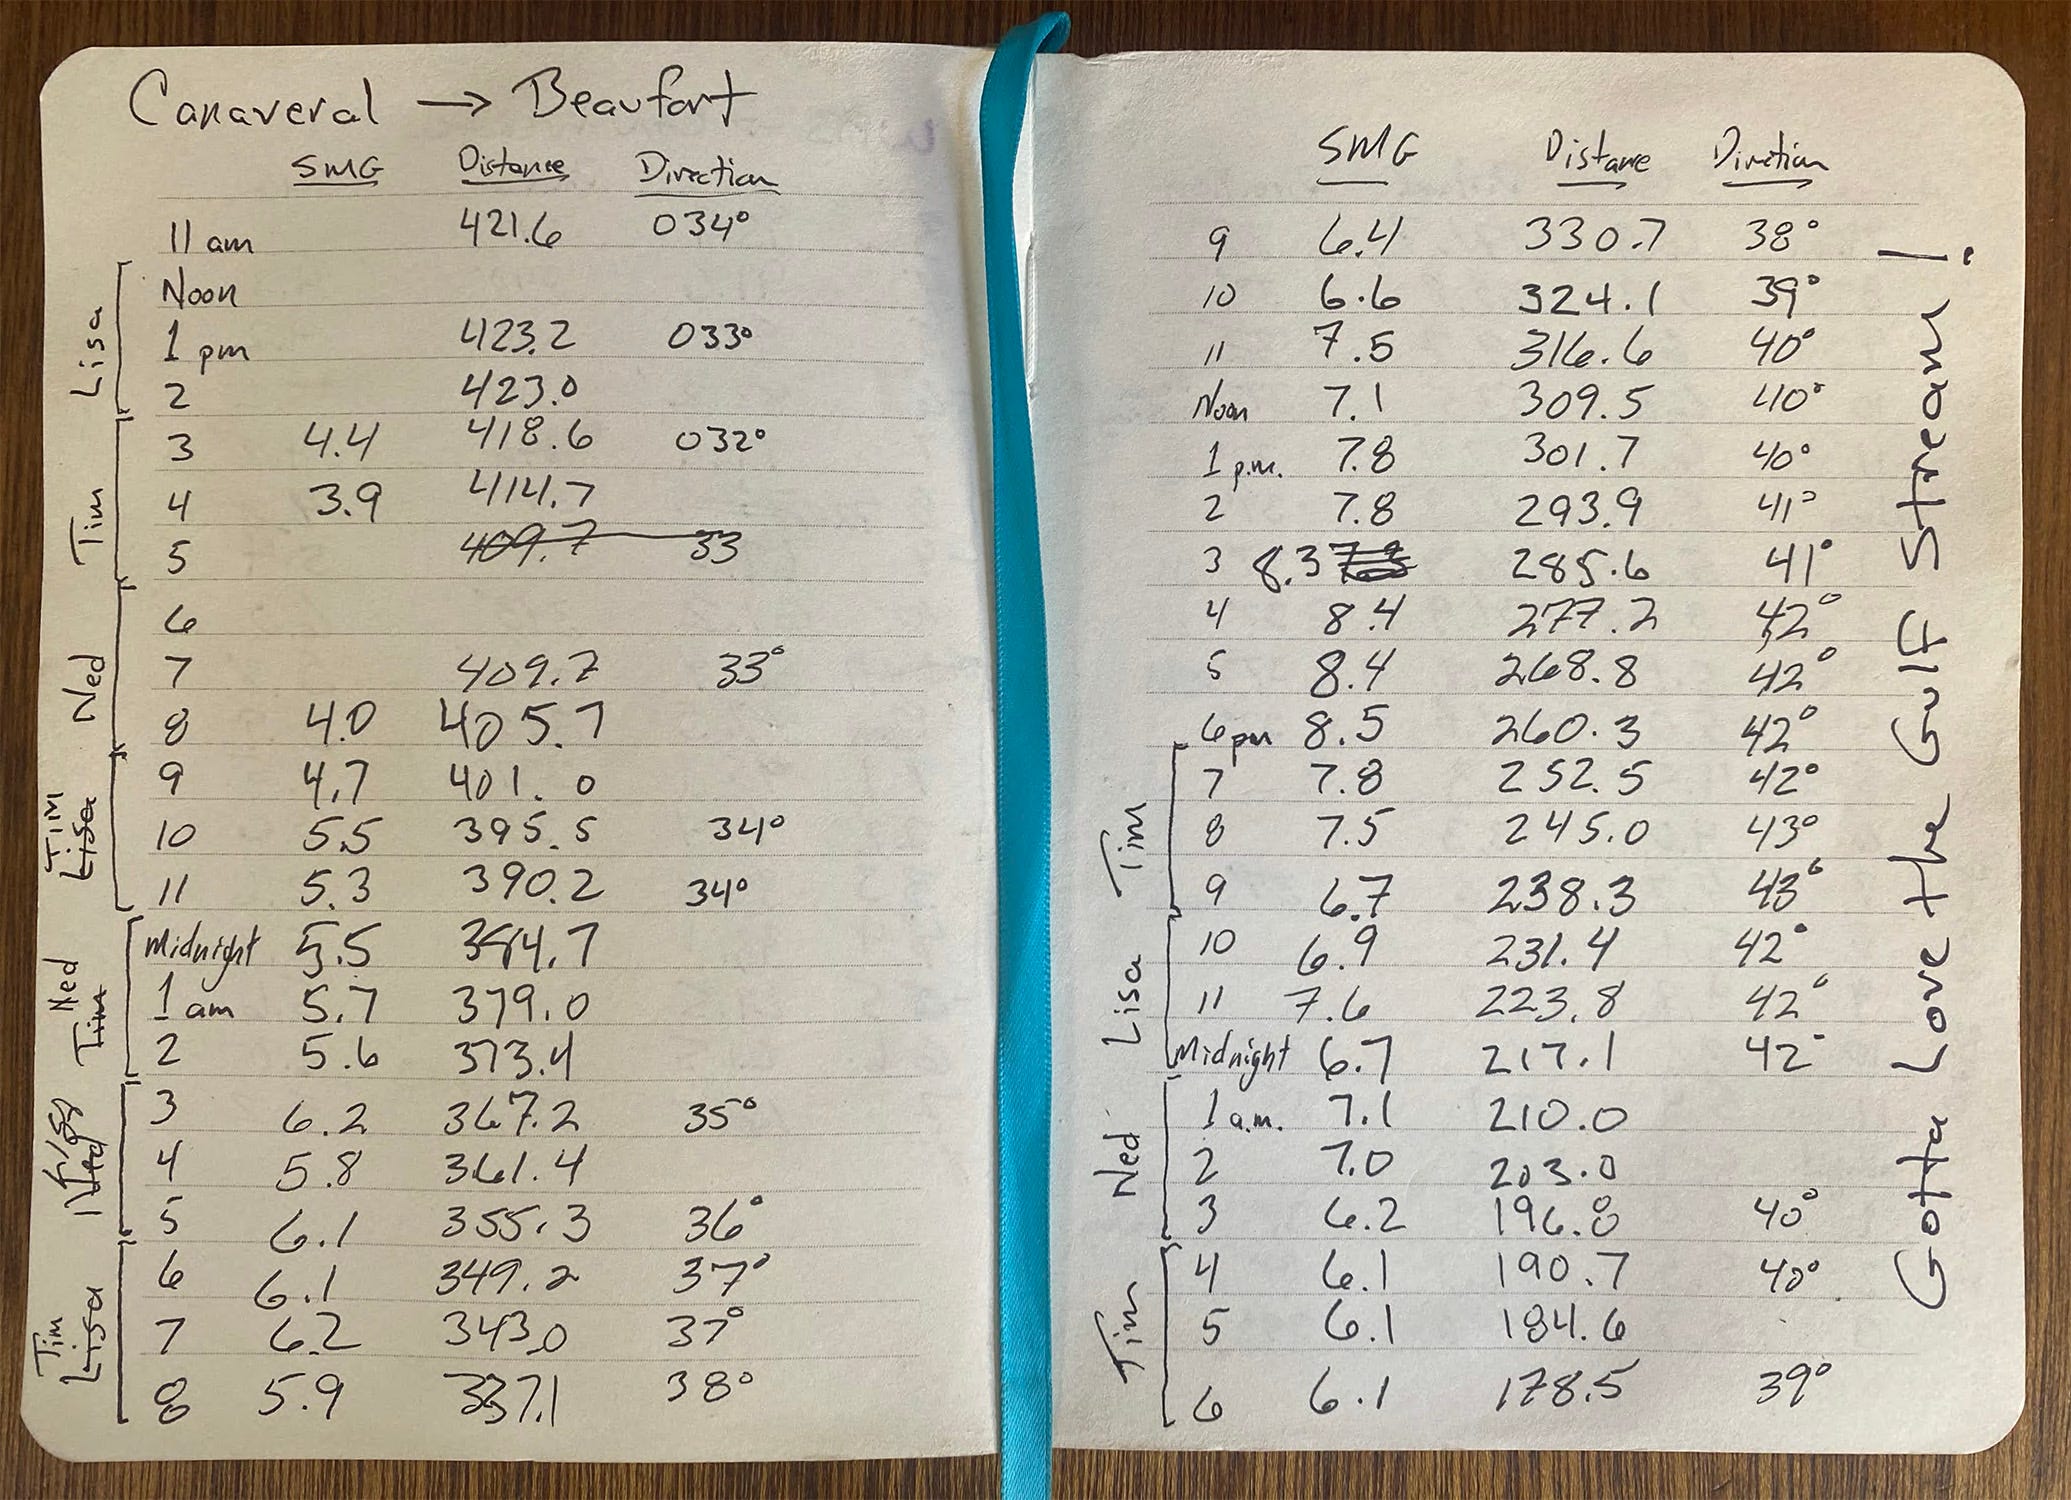 Canaveral → Beaufort
SMG Distance Direction
11 am 421.6 034°
Noon
1 pm 423.2 033°
2 423.0
3 4.4 418.6 032°
4 3.9 414.7
5 409.7 33
6
7 409.7 33°
8 4.0 405.7
9 4.7 401.0
10 5.5 395.5 34°
11 5.3 390.2 34°
Midnight 5.5 384.7
1 am 5.7 379.0
2 5.6 373.4
3 6.2 367.2 35°
4 5.8 361.4
5 6.1 355.3 36°
6 6.1 349.2 37°
7 6.2 343.0 37°
8 5.9 337.1 38°
Lisa
Tim
Ned
Tim
Lisa
Ned
Tim
Lisa
Ned
Tim
Lisa
SMG Distance Direction
9 6.4 330.7 38°
10 6.6 324.1 39°
11 7.5 316.6 40°
Noon 7.1 309.5 40°
1 p.m. 7.8 301.7 40°
2 7.8 293.9 41°
3 8.3 285.6 41°
4 8.4 277.2 42°
5 8.4 268.8 42°
6 pm 8.5 260.3 42°
7 7.8 252.5 42°
8 7.5 245.0 43°
9 6.7 238.3 43°
10 6.9 231.4 42°
11 7.6 223.8 42°
Midnight 6.7 217.1 42°
1 a.m. 7.1 210.0
2 7.0 203.0
3 6.2 196.8 40°
4 6.1 190.7 40°
5 6.1 184.6
6 6.1 178.5 39°
Tim
Lisa
Ned
Tim
Gotta Love the Gulf Stream!